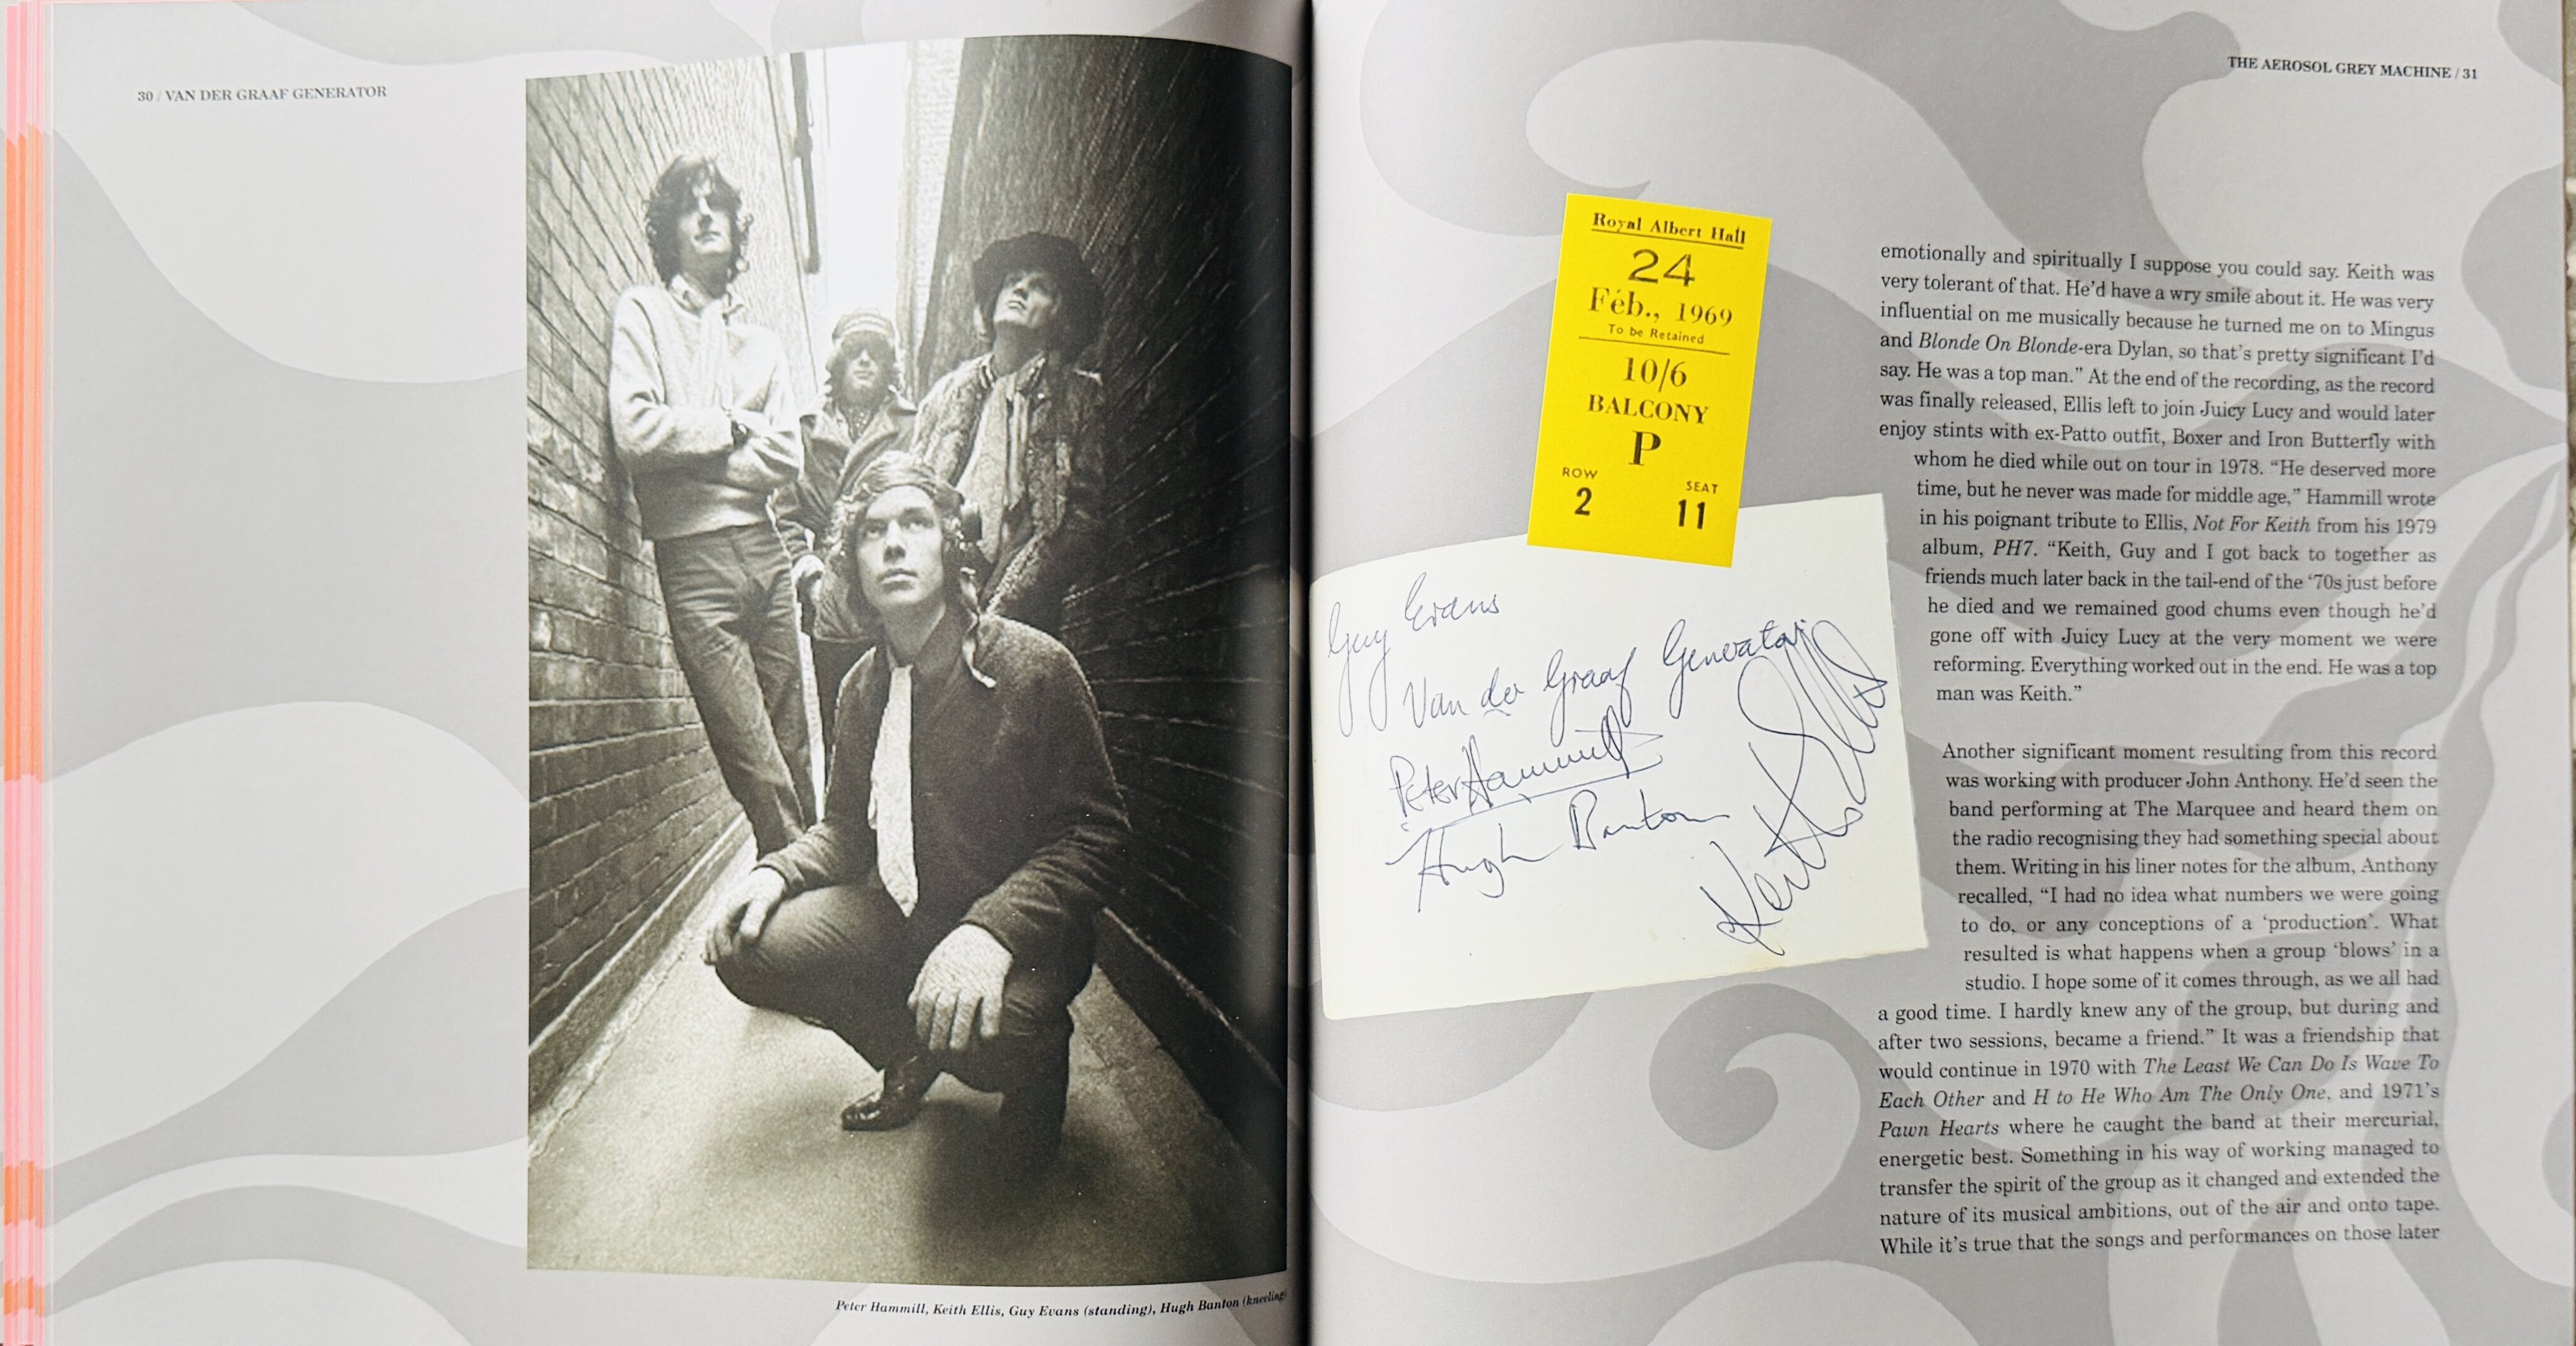 30 / VAN DER GRAAF GENERATOR
Peter Hammill, Keith Ellis, Guy Evans (standing), Hugh Banton (kneeling)
THE AEROSOL GREY MACHINE / 31
Royal Albert Hall
24
Feb., 1969
To be Retained
10/6
BALCONY
P
ROW SEAT
2 11
Guy Evans
Van der Graaf Generator
Peter Hammill
Hugh Banton
Keith Ellis
emotionally and spiritually I suppose you could say. Keith was
very tolerant of that. He'd have a wry smile about it. He was very
influential on me musically because he turned me on to Mingus
and Blonde On Blonde-era Dylan, so that's pretty significant I'd
say. He was a top man." At the end of the recording, as the record
was finally released, Ellis left to join Juicy Lucy and would later
enjoy stints with ex-Patto outfit, Boxer and Iron Butterfly with
whom he died while out on tour in 1978. "He deserved more
time, but he never was made for middle age," Hammill wrote
in his poignant tribute to Ellis, Not For Keith from his 1979
album, PH7. "Keith, Guy and I got back to together as
friends much later back in the tail-end of the '70s just before
he died and we remained good chums even though he'd
gone off with Juicy Lucy at the very moment we were
reforming. Everything worked out in the end. He was a top
man was Keith."
Another significant moment resulting from this record
was working with producer John Anthony. He'd seen the
band performing at The Marquee and heard them on
the radio recognising they had something special about
them. Writing in his liner notes for the album, Anthony
recalled, "I had no idea what numbers we were going
to do, or any conceptions of a 'production'. What
resulted is what happens when a group 'blows' in a
studio. I hope some of it comes through, as we all had
a good time. I hardly knew any of the group, but during and
after two sessions, became a friend." It was a friendship that
would continue in 1970 with The Least We Can Do Is Wave To
Each Other and H to He Who Am The Only One, and 1971's
Pawn Hearts where he caught the band at their mercurial,
energetic best. Something in his way of working managed to
transfer the spirit of the group as it changed and extended the
nature of its musical ambitions, out of the air and onto tape.
While it's true that the songs and performances on those later